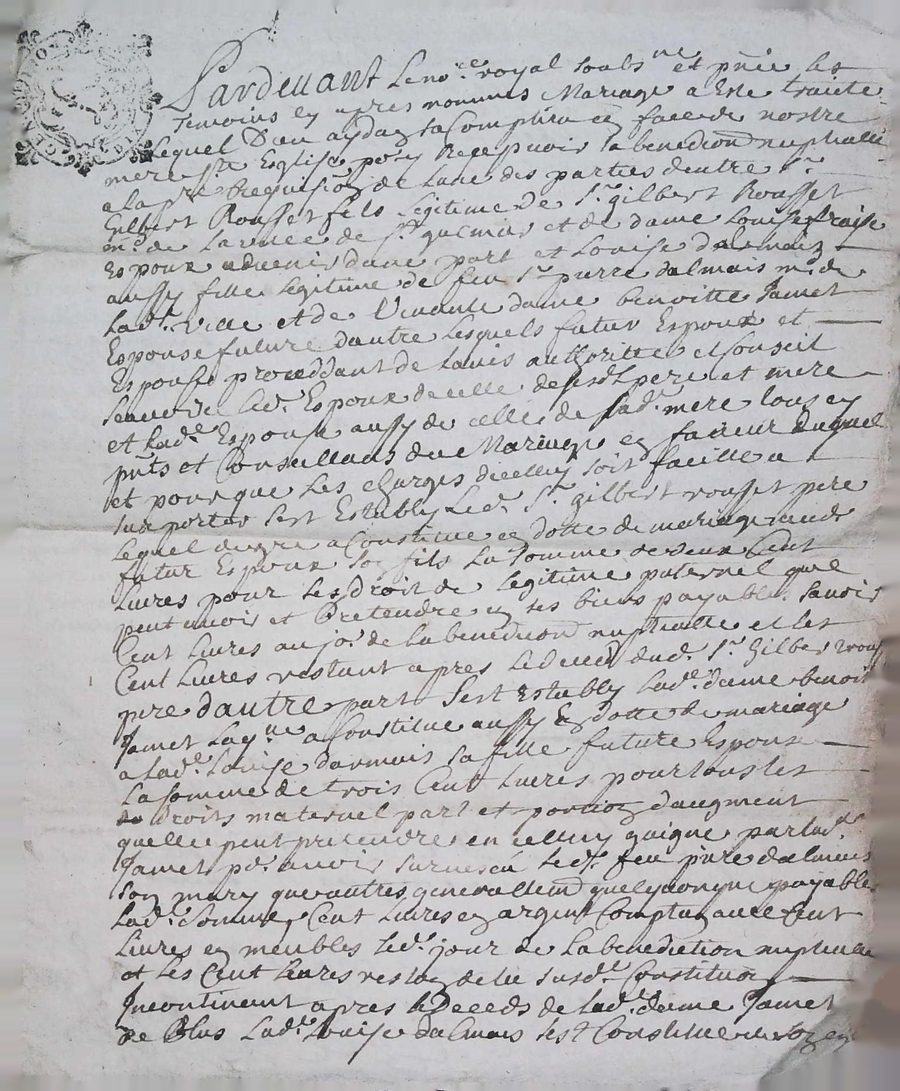 Pardevant le nore royal soubsne et pnts les
Temoins cy apres nommes Mariage a Esté traitté
Lequel Dieu aydaz sacomplira en face de nostre
mere ste Eglise pour Recepvoir la benediction nuptialle
a la pre Requision de lune des parties dentre sr
Gilbert Rousset fils legitime de sr gilbert Rousset
md de la ville de st et de dame Louise fraise
Espoux advenir dune part et Louise dalmaiz
aussy fille legitime de feu sr pierre dalmais md de
lad. ville et de Vivante dame benoitte Jamet
Espouse future dautre Lesquels futur Espoux et
Espouse proceddant de lavis authoritte et Conseil
scavoir led. Espoux de celle desesd. pere et mere
et lade Espouse aussy de celle de sad. mere tous cy
pnts et Conseillans du Mariage en faveur duquel
et pour que les charges dicelluy soit facille a
suporter sest Estably led. sr gilbert rousset pere
lequel de gre a Constitue en dotte de mariage aud.
futur Espoux son fils la somme de deux Cent
livres pour les droit de legitime paternel quil
peut avoir et Pretendre en ses biens payable savoir
Cent livres au jor de la benediction nuptialle et les
Cent livres restant apres le deced dud. sr Gilbert rouss
pere dautre part sest Estably lade dame benoit
Jamet laqlle a Constitue aussy En dotte de mariage
a lad. Louise dalmais sa fille future Espouse
la somme de trois Cent livres pour tous les
droits maternel part et portion daugment
quelle peut pretendre en celluy gaigne par lad.
Jamet pr avoir survescu led. feu pierre dalmais
son mary que autres generallement quelyconque payable
lad. somme Cent livres en argent Comptant Cent
livres en meubles led. jour de la benediction nuptialle
et les Cent livres restoz de lad. susd. Constitution
Incontinent apres le Deceds de lad. dame Jamet
de Plus lad. Louise dalmais sest Constitue